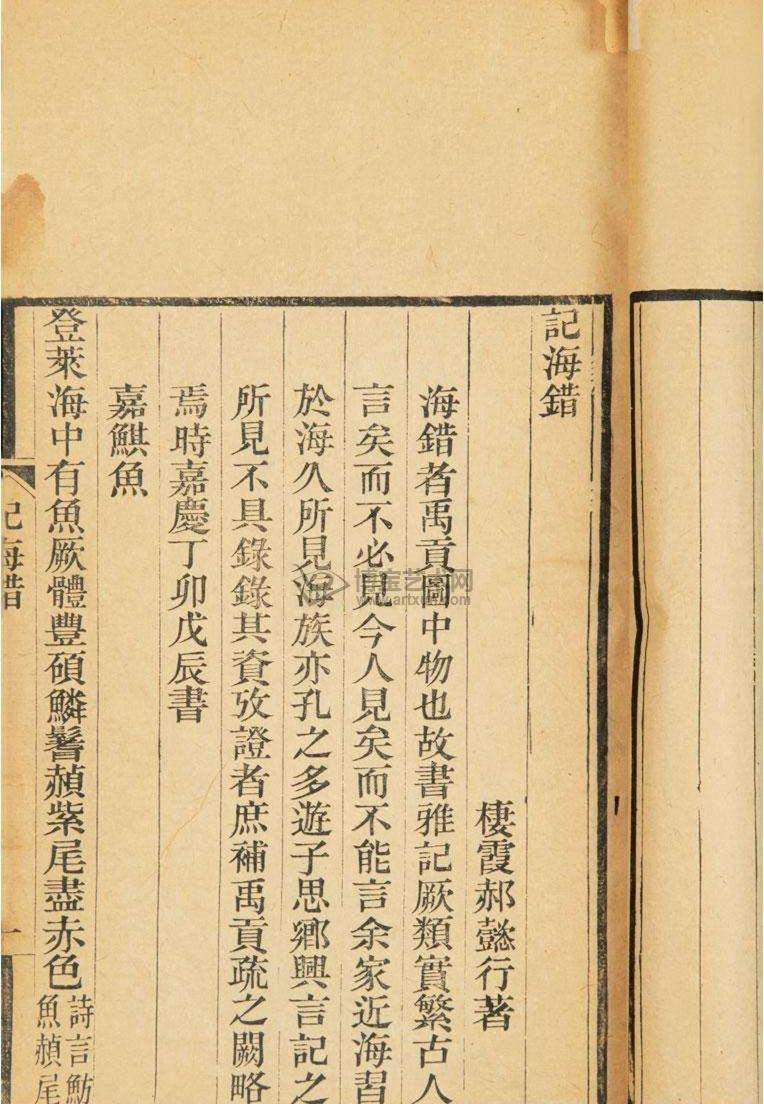 記海錯
棲霞郝懿行著
海錯者禹貢圖中物也故書雅記厥類實繁古人
言矣而不必見今人見矣而不能言余家近海習
於海久所見海族亦孔之多遊子思鄉興言記之
所見不具錄錄其資攷證者庶補禹貢疏之闕略
焉時嘉慶丁卯戊辰書
嘉鯕魚
登萊海中有魚厥體豐碩鱗鬐赬紫尾盡赤色
詩言魴
魚赬尾
記海錯
一
博宝艺术网
www.artxun.com